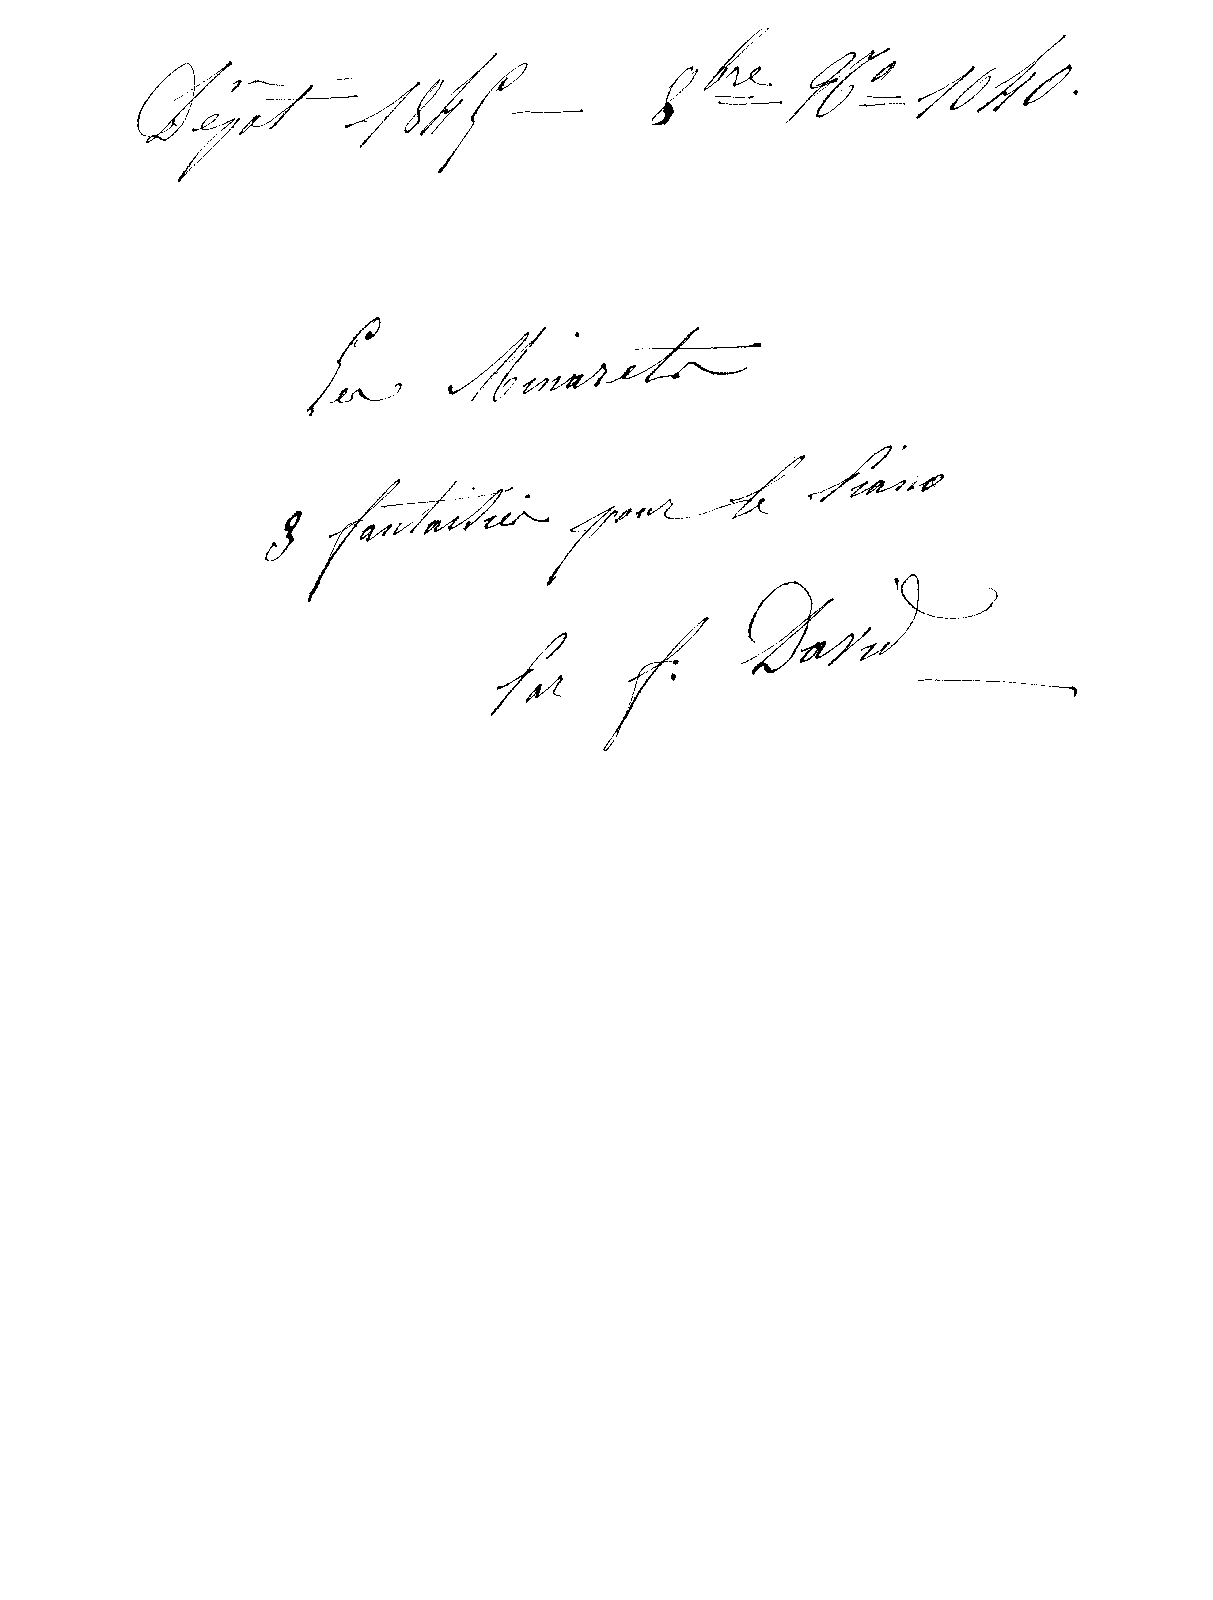 Dépôt 1845 — 8bre No 1040.
Les Minarets
3 fantaisies pour le Piano
Par f. David